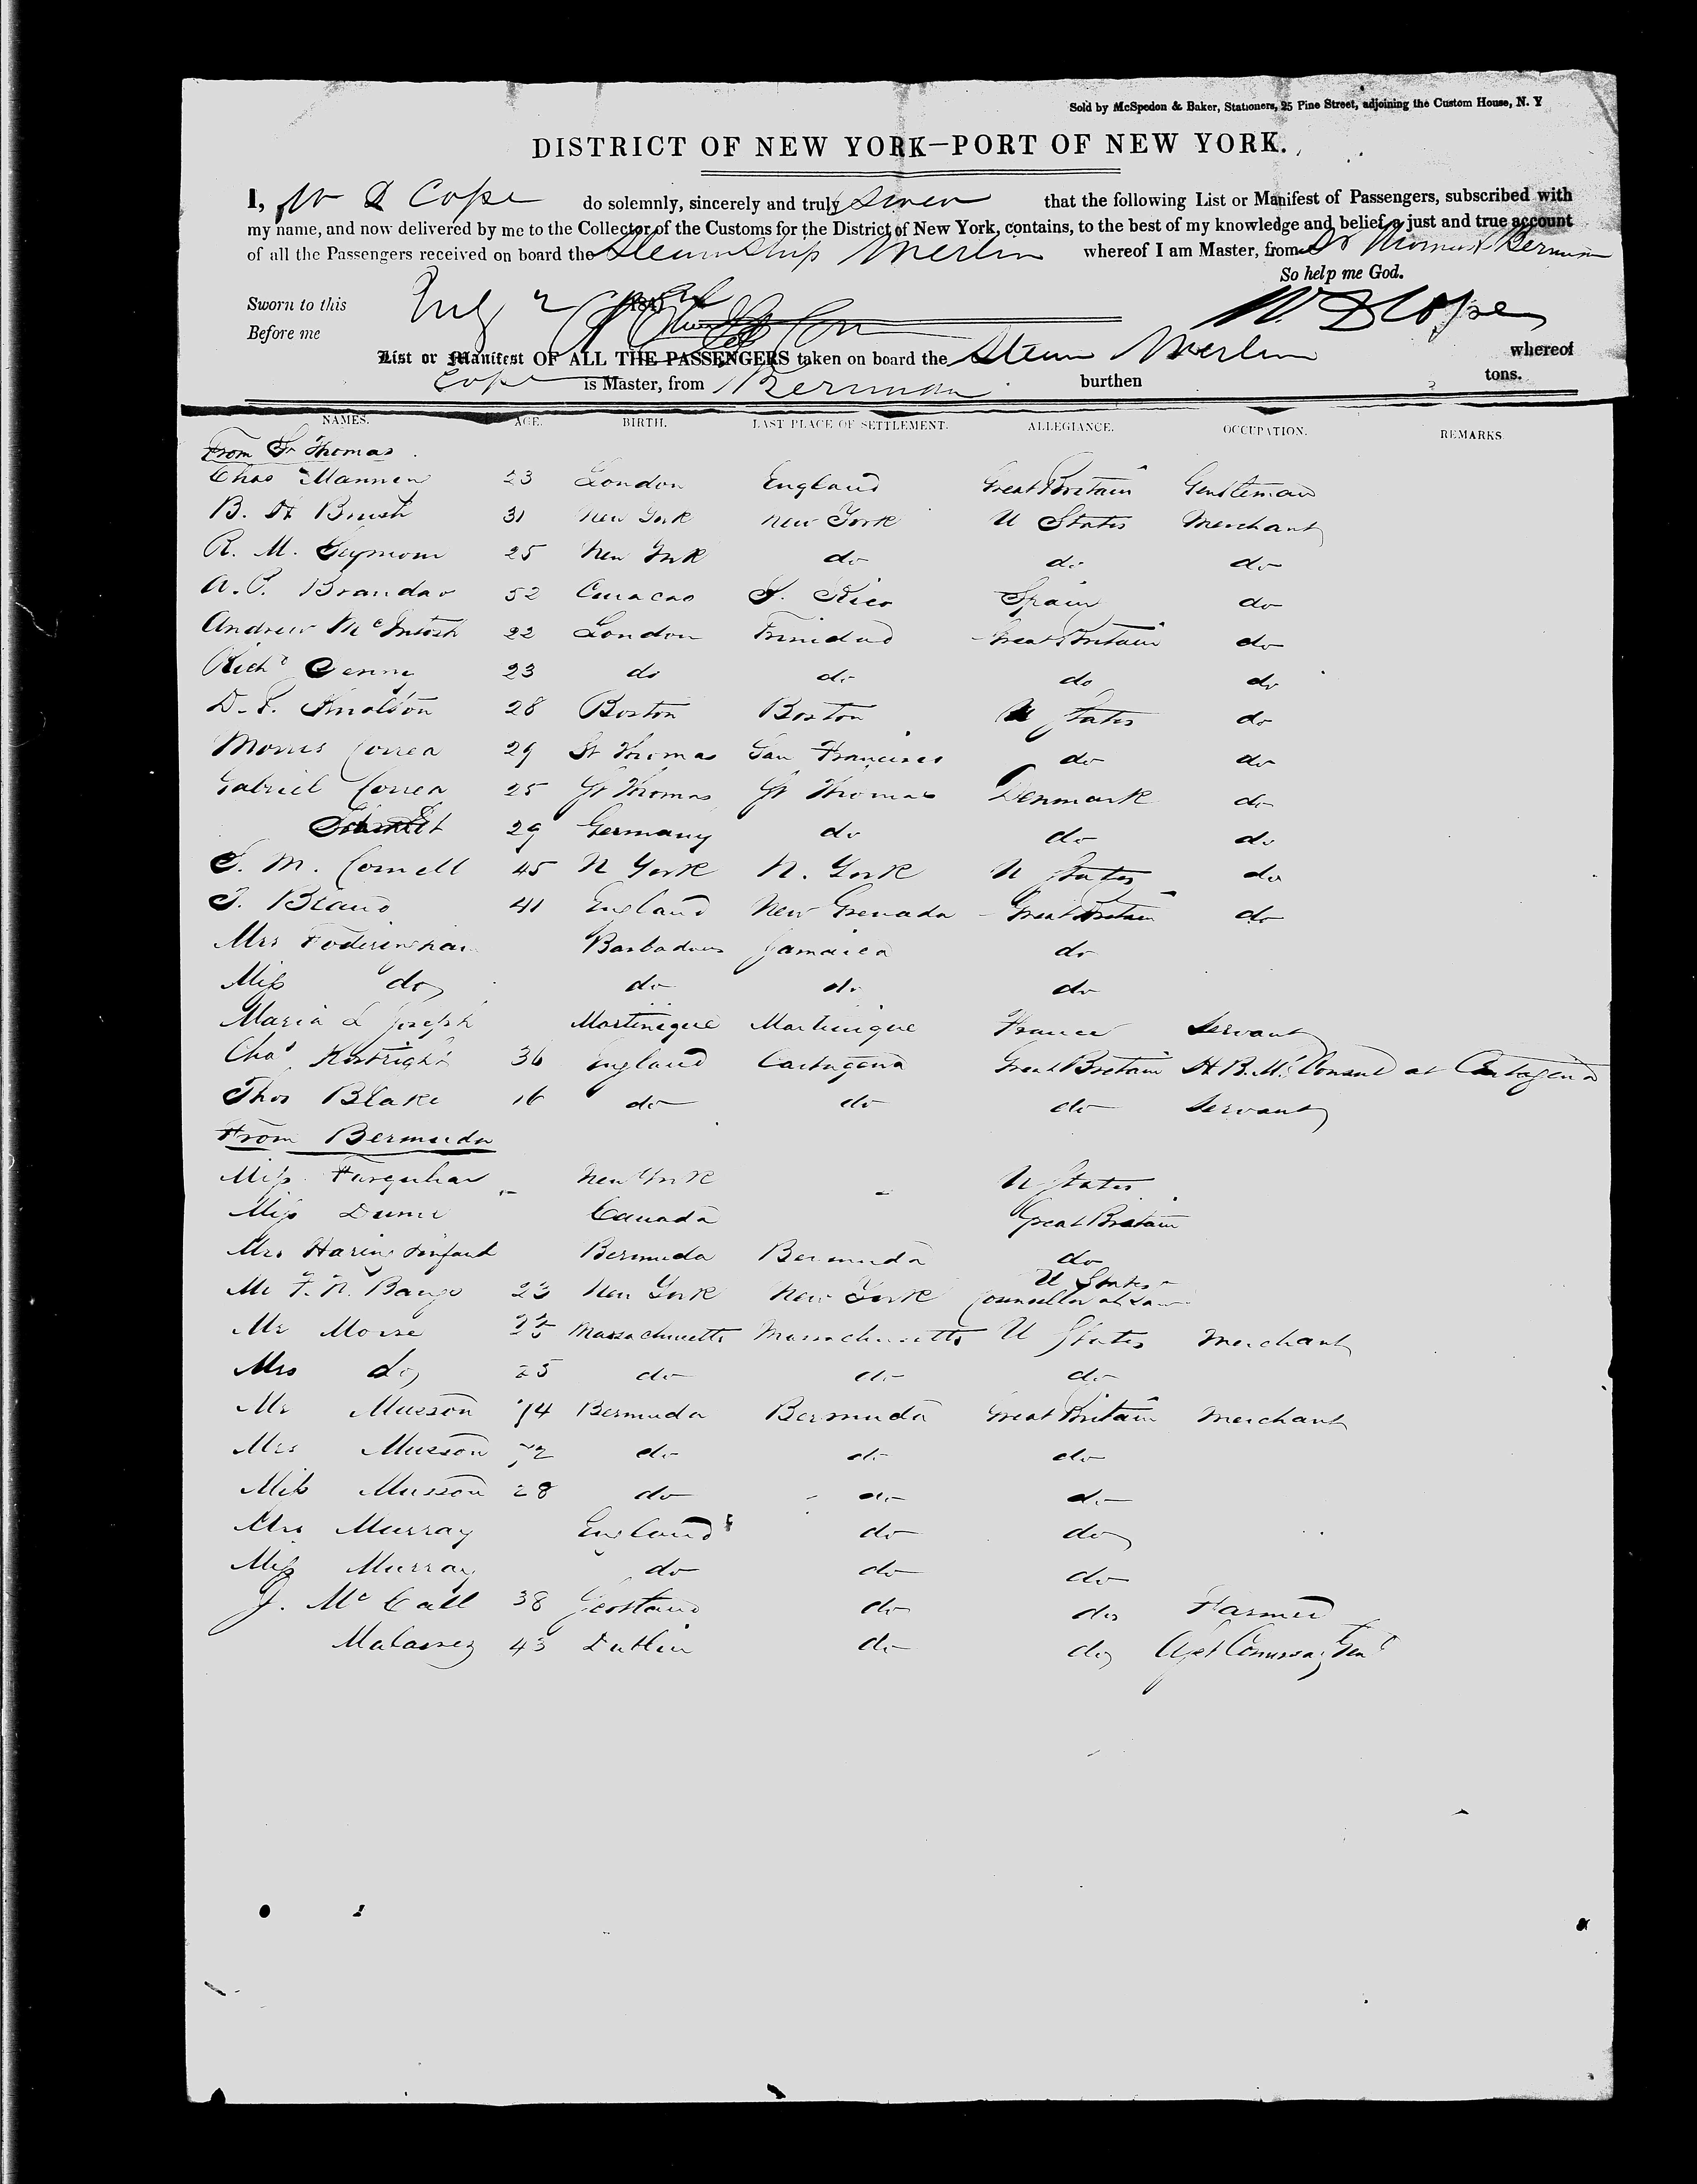 Sold by McSpedon & Baker, Stationers, 25 Pine Street, adjoining the Custom House, N. Y
DISTRICT OF NEW YORK—PORT OF NEW YORK.
I, W D Cope do solemnly, sincerely and truly swear that the following List or Manifest of Passengers, subscribed with
my name, and now delivered by me to the Collector of the Customs for the District of New York, contains, to the best of my knowledge and belief, a just and true account
of all the Passengers received on board the Steamship Merlin whereof I am Master, from St Thomas & Bermuda
So help me God.
Sworn to this July 2 184
W. D Cope
Before me
List or Manifest OF ALL THE PASSENGERS taken on board the Steam Merlin whereof
Cope is Master, from Bermuda burthen tons.
NAMES. AGE. BIRTH. LAST PLACE OF SETTLEMENT. ALLEGIANCE. OCCUPATION. REMARKS
From St Thomas
Chas Mannen 23 London England Great Britain Gentleman
B. H Brush 31 New York New York U States Merchant
R. M. Seymour 25 New York do do do
A. P. Brandao 52 Curacao P. Rico Spain do
Andrew McIntosh 22 London Trinidad Great Britain do
Richd 23 do do do do
D. P. Knolton 28 Boston Boston U States do
Morris Correa 29 St Thomas San Francisco do do
Gabriel Correa 25 St Thomas St Thomas Denmark do
Schmidt 29 Germany do do do
S. M. Cornell 45 N York N. York U States do
J. Bland 41 England New Grenada Great Britain do
Mrs Barbadoes Jamaica do
Miss do do do do
Maria L Joseph Martinique Martinique France Servant
Chas Kortright 36 England Cartagena Great Britain H. B. M.s Consul at Cartagena
Thos Blake 16 do do do Servant
From Bermuda
Miss Farquhar New York U States
Miss Canada Great Britain
Mrs & infant Bermuda Bermuda do
U States
Mr F. N. Bangs 23 New York New York Counsellor at Law
Mr Morse 25 Massachusetts Massachusetts U States Merchant
Mrs do 25 do do do
Mr Musson 74 Bermuda Bermuda Great Britain Merchant
Mrs Musson 72 do do do
Miss Musson 28 do do do
Mrs Murray England do do
Miss Murray do do do
J. McCall 38 Scotland do do Farmer
43 Dublin do do